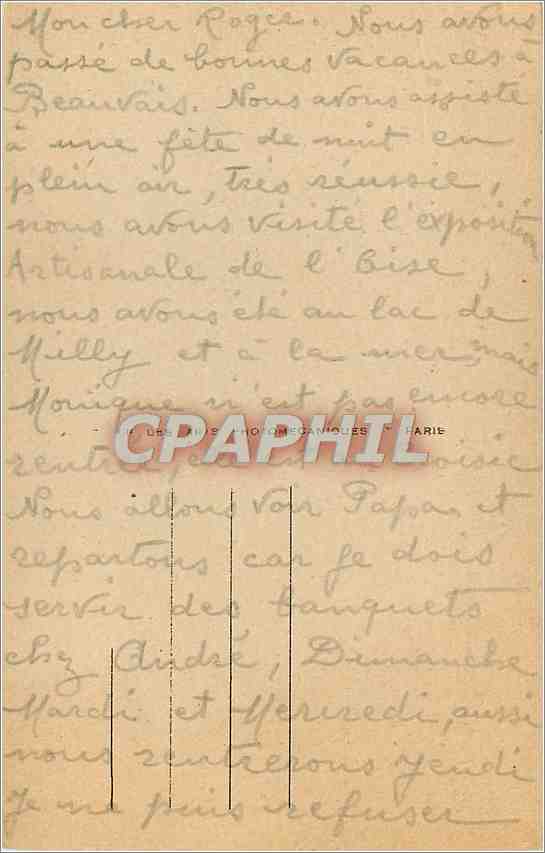 Mon cher Roger. Nous avons
passé de bonnes vacances à
Beauvais. Nous avons assisté
à une fête de nuit en
plein air, très réussie,
nous avons visité l'exposition
Artisanale de l'Oise,
nous avons été au lac de
Milly et à la mer, mais
Monique n'est pas encore
LES ARTS PHOTOMECANIQUES PARIS
CPAPHIL
Nous allons voir Papa et
repartons car je dois
servir des banquets
chez André, Dimanche
Mardi et Mercredi, aussi
nous rentrerons Jeudi
Je ne puis refuser